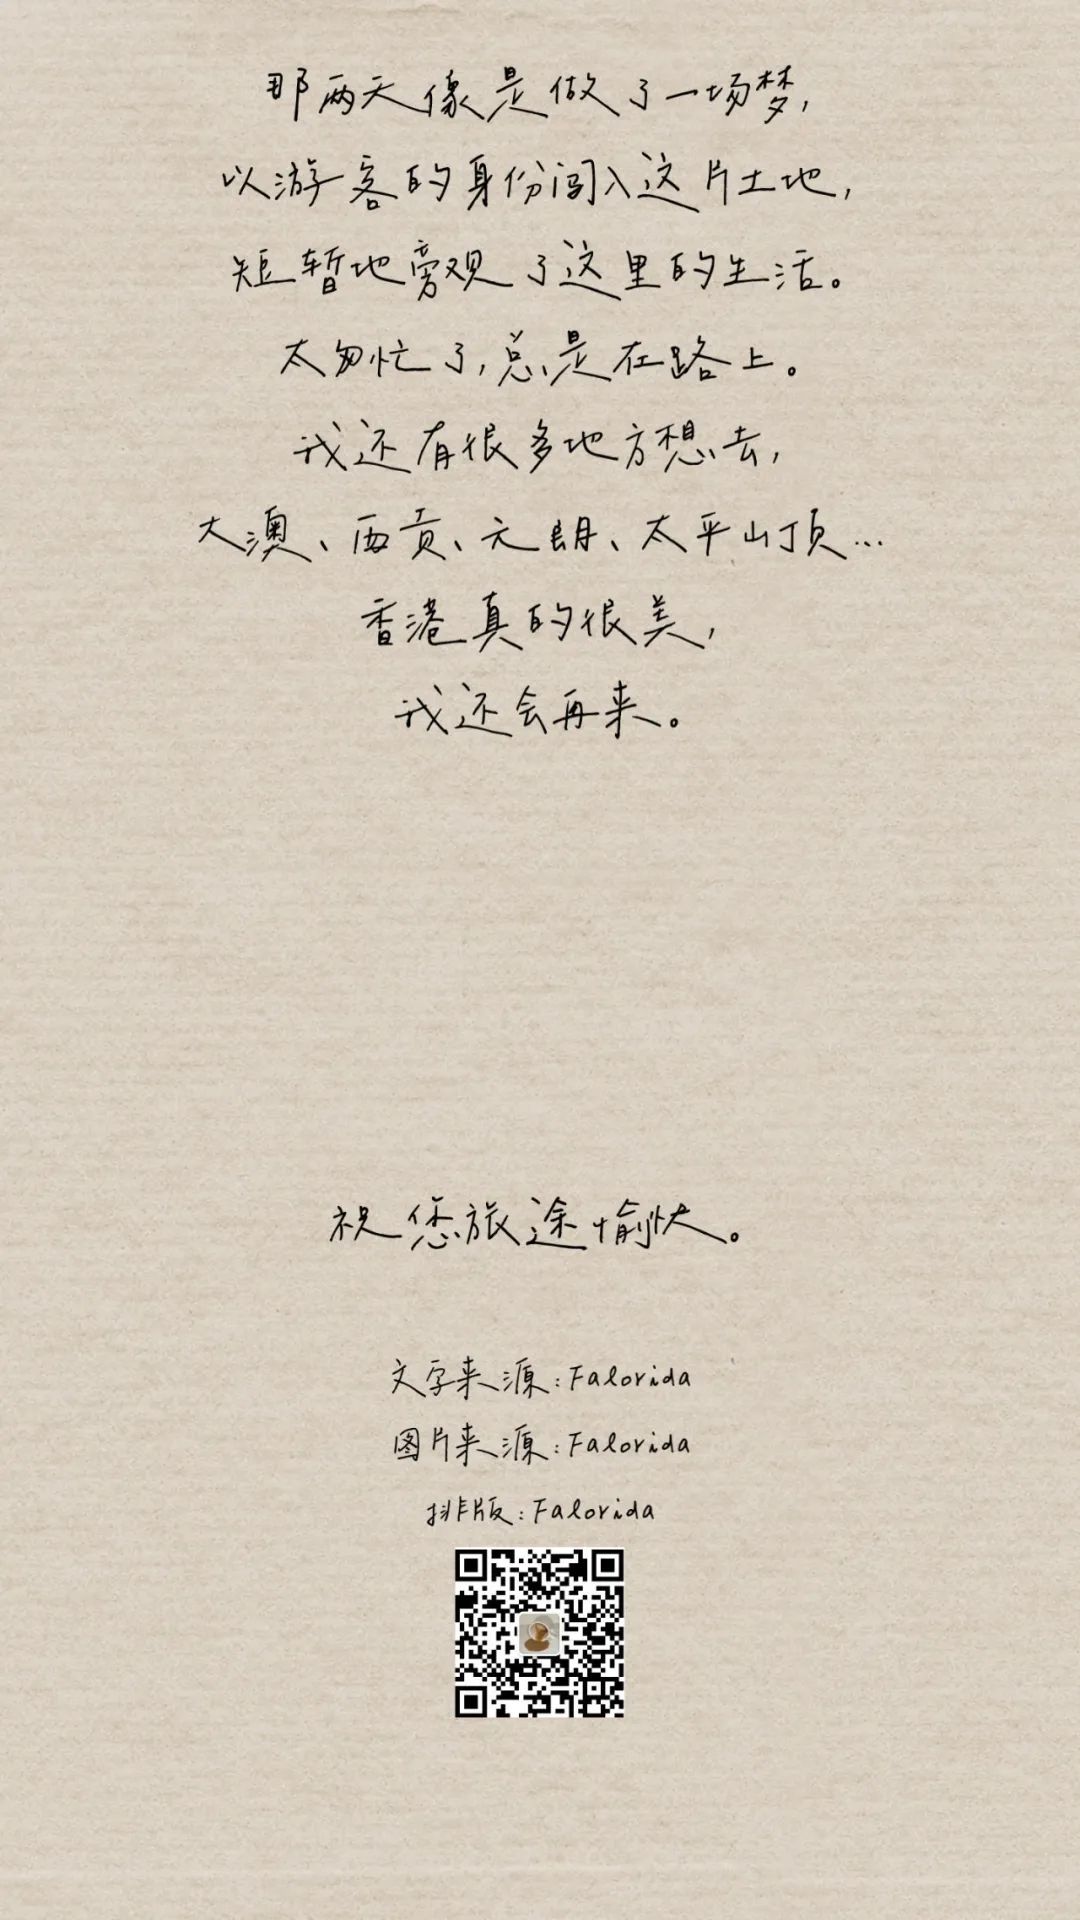 那两天像是做了一场梦,
以游客的身份闯入这片土地,
短暂地旁观了这里的生活。
太匆忙了,总是在路上。
我还有很多地方想去,
大澳、西贡、元朗、太平山顶...
香港真的很美,
我还会再来。
祝您旅途愉快。
文字来源:Falorida
图片来源:Falorida
排版:Falorida